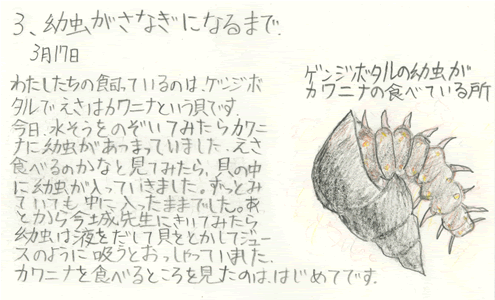 3、幼虫がさなぎになるまで.
3月17日
わたしたちの飼っているのは、ゲンジボ
タルで えさはカワニナという貝です.
今日.水そうをのぞいてみたらカワニ
ナに幼虫があつまっていました.えさ
食べるのかなと見てみたら、貝の中
に幼虫が入っていきました。ずっとみ
ていても中に入ったままでした。あ
とから今城先生にきいてみたら
幼虫は液をだして貝をとかしてジュー
スのように吸うとおっしゃっていました.
カワニナを食べるところを見たのは、はじめてです.
ゲンジボタルの幼虫が
カワニナの食べている所